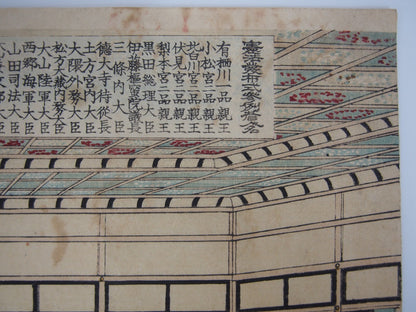 憲法發布式參列官名
有栖川一品親王
小松宮二品親王
北白川宮二品親王
伏見宮二品親王
梨本宮三品親王
黒田総理大臣
伊藤枢密院議長
三條内大臣
德大寺侍從長
土方宮内大臣
大隈外務大臣
松方大蔵内務大臣
大山陸軍大臣
西郷海軍大臣
山田司法大臣